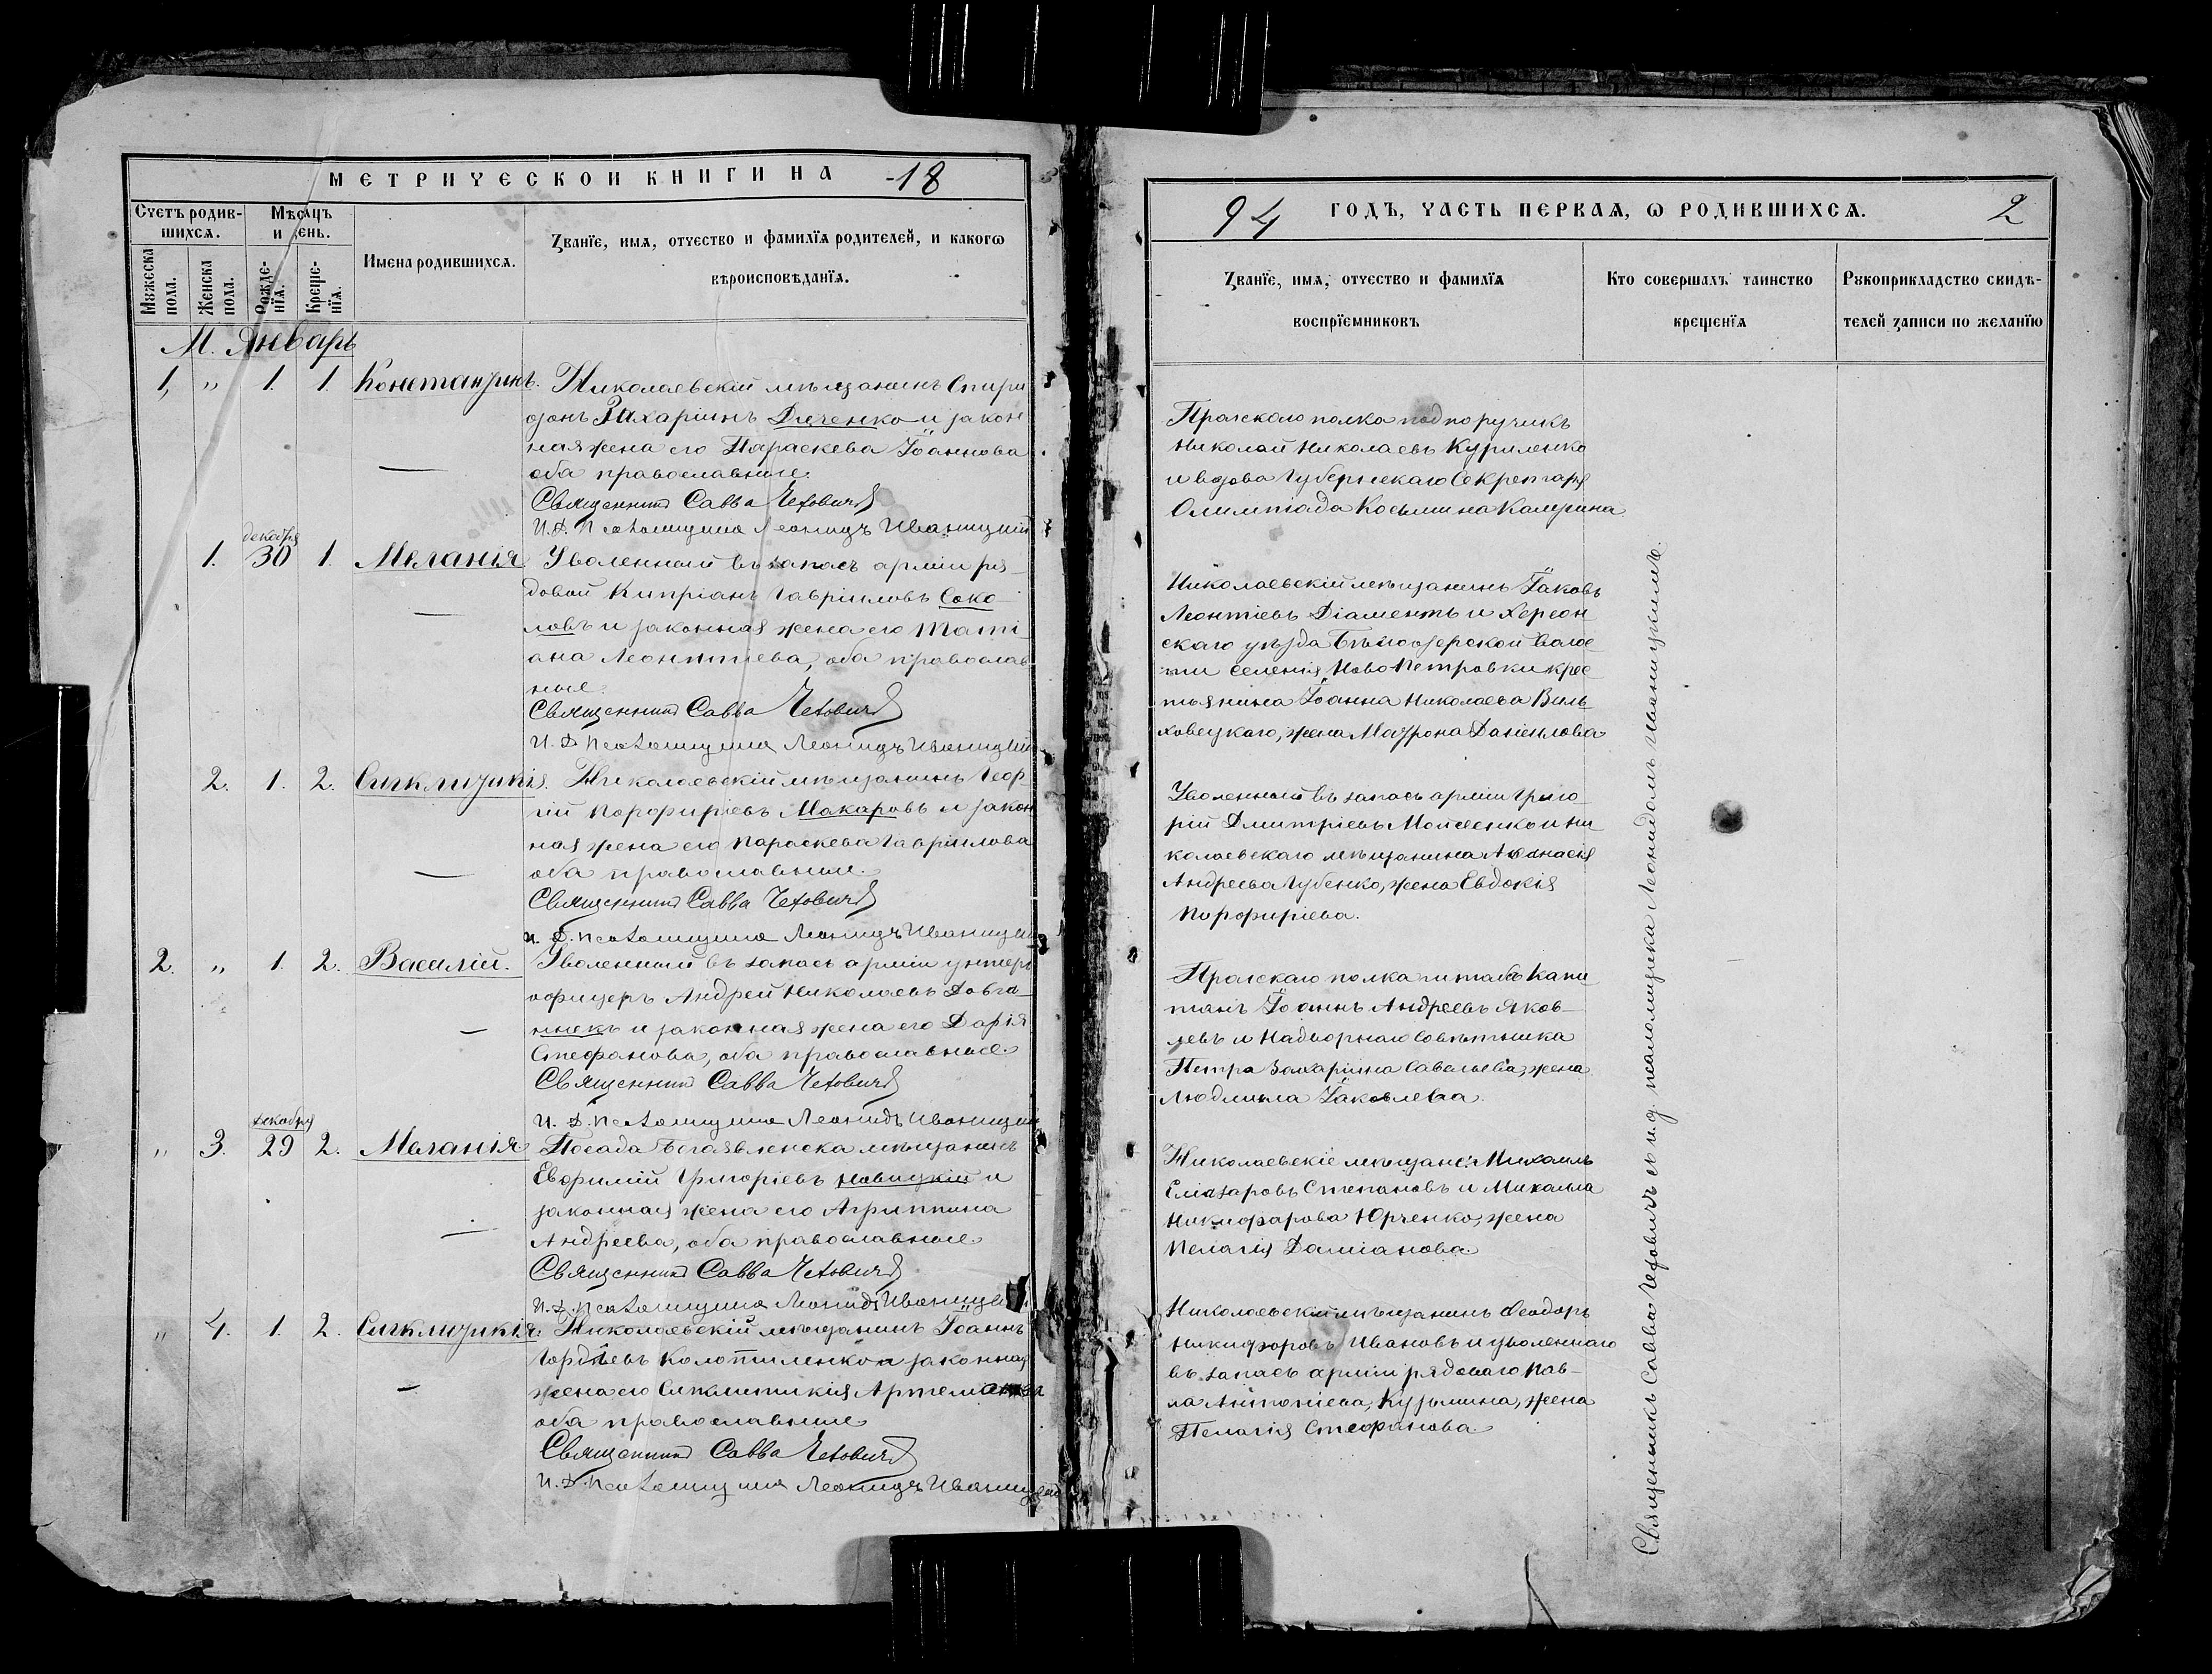 МЕТРИЧЕСКОЙ КНИГИ НА 18
Счетъ родив-
шихсѧ.
Мѣсѧцъ
и день.
Мꙋжеска
пола.
Женска
пола.
Рожде-
нїѧ.
Креще-
нїѧ.
Имена родившихсѧ.
Ꙁванїе, имѧ, отчество и фамилїѧ родителей, и какогѡ
вѣроисповѣданїѧ.
М. Январь
1, " 1. 1. Константинъ. Николаевскій мѣщанинъ Спири
донъ Захаріинъ Дяченко и закон
ная жена его Параскева Іоаннова
оба православные.
Священникъ Савва Чехович
И. Д. Псаломщика Леонидъ Иваницкій
декабря
1. 30 1. Меланія Уволенный въ запасъ арміи ря
довой Кипріанъ Гавріиловъ Соко
ловъ и законная жена его Тати
ана Леонтіева, оба православ
ные.
Священникъ Савва Чехович
И. Д. Псаломщика Леонидъ Иваницкій
2. 1. 2. Сигклитикія. Николаевскій мѣщанинъ Геор
гій Порфиріевъ Макаровъ и закон
ная жена его Параскева Гавріилова
оба православные.
Священникъ Савва Чехович
И. Д. Псаломщика Леонидъ Иваницкій
2. " 1. 2. Василій. Уволенный въ запасъ арміи унтеръ
офицеръ Андрей Николаевъ Довга
нюкъ и законная жена его Дарія
Стефанова, оба православные.
Священникъ Савва Чехович
декабря
И. Д. Псаломщика Леонидъ Иваницкій
" 3. 29 2. Меланія. Посада Богоявленска мѣщанинъ
Евфимій Григоріевъ Новицкій и
законная жена его Агриппина
Андреева, оба православные.
Священникъ Савва Чехович
И. Д. Псаломщика Леонидъ Иваницкій
" 4. 1. 2. Сигклитикія. Николаевскій мѣщанинъ Іоаннъ
Гордѣевъ Колотиленко и законная
жена его Сигклитикія Артемі
оба православные.
Священникъ Савва Чехович
И. Д. Псаломщика Леонидъ Иваницкій
94 ГОДЪ, ЧАСТЬ ПЕРВАѦ, Ѡ РОДИВШИХСѦ. 2
Ꙁванїе, имѧ, отчество и фамилїѧ
воспрїемниковъ
Кто совершалъ таинство
крещенїѧ
Рꙋкоприкладство свидѣ-
телей ꙁаписи по желанїю
Пражскаго полка подпоручикъ
Николай Николаевъ Куриленко
и вдова Губернскаго Секретаря
Олимпіада Косьмина
Николаевскій мѣщанинъ Іаковъ
Леонтіевъ Діаментъ и Херсон
скаго уѣзда Бѣлозерской волос
ти селенія Ново Петровки крес
тьянина Іоанна Николаева Виль
ховецкаго, жена Матрона Даніилова
Уволенный въ запасъ арміи Григо
рій Дмитріевъ Мойсеенко и Ни
колаевскаго мѣщанина Афанасія
Андреева Губенко, жена Евдокія
Порфиріева.
Пражскаго полка штабсъ Капи
танъ Іоаннъ Андреевъ Яков-
левъ и Надворнаго Совѣтника
Петра Захаріина Савельева, жена
Людмила Іаковлева.
Николаевскіе мѣщане: Михаилъ
Еліазаровъ Степановъ и Михаила
Никифорова Юрченко, жена
Пелагія Даміанова.
Николаевскій мѣщанинъ Феодоръ
Никифоровъ Ивановъ и уволеннаго
въ запасъ арміи рядоваго Пав-
ла Антоніева, Кузьмина, жена
Пелагія Стефанова.
Священникъ Савва Чеховичъ съ и. д. псаломщика Леонидомъ Иваницкимъ.